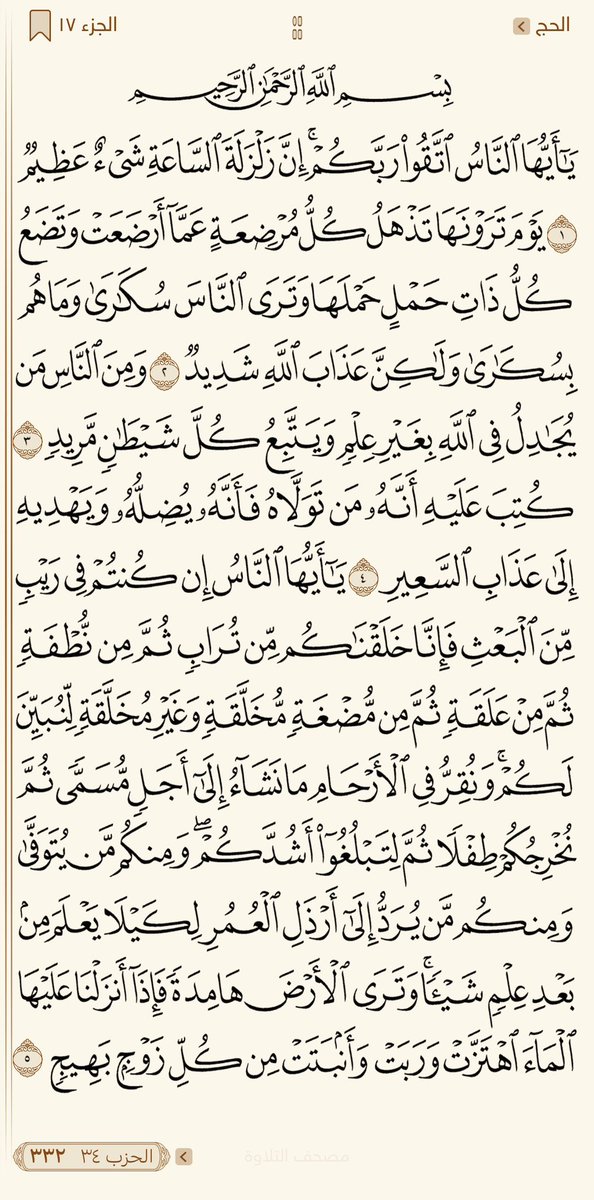 الحج
الجزء ١٧
بِسْمِ ٱللَّهِ ٱلرَّحْمَٰنِ ٱلرَّحِيمِ
يَٰٓأَيُّهَا ٱلنَّاسُ ٱتَّقُوا۟ رَبَّكُمْ ۚ إِنَّ زَلْزَلَةَ ٱلسَّاعَةِ شَىْءٌ عَظِيمٌ
١ يَوْمَ تَرَوْنَهَا تَذْهَلُ كُلُّ مُرْضِعَةٍ عَمَّآ أَرْضَعَتْ وَتَضَعُ
كُلُّ ذَاتِ حَمْلٍ حَمْلَهَا وَتَرَى ٱلنَّاسَ سُكَٰرَىٰ وَمَا هُم
بِسُكَٰرَىٰ وَلَٰكِنَّ عَذَابَ ٱللَّهِ شَدِيدٌ ٢ وَمِنَ ٱلنَّاسِ مَن
يُجَٰدِلُ فِى ٱللَّهِ بِغَيْرِ عِلْمٍ وَيَتَّبِعُ كُلَّ شَيْطَٰنٍ مَّرِيدٍ ٣
كُتِبَ عَلَيْهِ أَنَّهُۥ مَن تَوَلَّاهُ فَأَنَّهُۥ يُضِلُّهُۥ وَيَهْدِيهِ
إِلَىٰ عَذَابِ ٱلسَّعِيرِ ٤ يَٰٓأَيُّهَا ٱلنَّاسُ إِن كُنتُمْ فِى رَيْبٍ
مِّنَ ٱلْبَعْثِ فَإِنَّا خَلَقْنَٰكُم مِّن تُرَابٍ ثُمَّ مِن نُّطْفَةٍ
ثُمَّ مِنْ عَلَقَةٍ ثُمَّ مِن مُّضْغَةٍ مُّخَلَّقَةٍ وَغَيْرِ مُخَلَّقَةٍ لِّنُبَيِّنَ
لَكُمْ ۚ وَنُقِرُّ فِى ٱلْأَرْحَامِ مَا نَشَآءُ إِلَىٰٓ أَجَلٍ مُّسَمًّى ثُمَّ
نُخْرِجُكُمْ طِفْلًا ثُمَّ لِتَبْلُغُوٓا۟ أَشُدَّكُمْ ۖ وَمِنكُم مَّن يُتَوَفَّىٰ
وَمِنكُم مَّن يُرَدُّ إِلَىٰٓ أَرْذَلِ ٱلْعُمُرِ لِكَيْلَا يَعْلَمَ مِنۢ
بَعْدِ عِلْمٍ شَيْـًٔا ۚ وَتَرَى ٱلْأَرْضَ هَامِدَةً فَإِذَآ أَنزَلْنَا عَلَيْهَا
ٱلْمَآءَ ٱهْتَزَّتْ وَرَبَتْ وَأَنۢبَتَتْ مِن كُلِّ زَوْجٍۭ بَهِيجٍ ٥
مصحف التلاوة
الحزب ٣٤ ٣٣٢